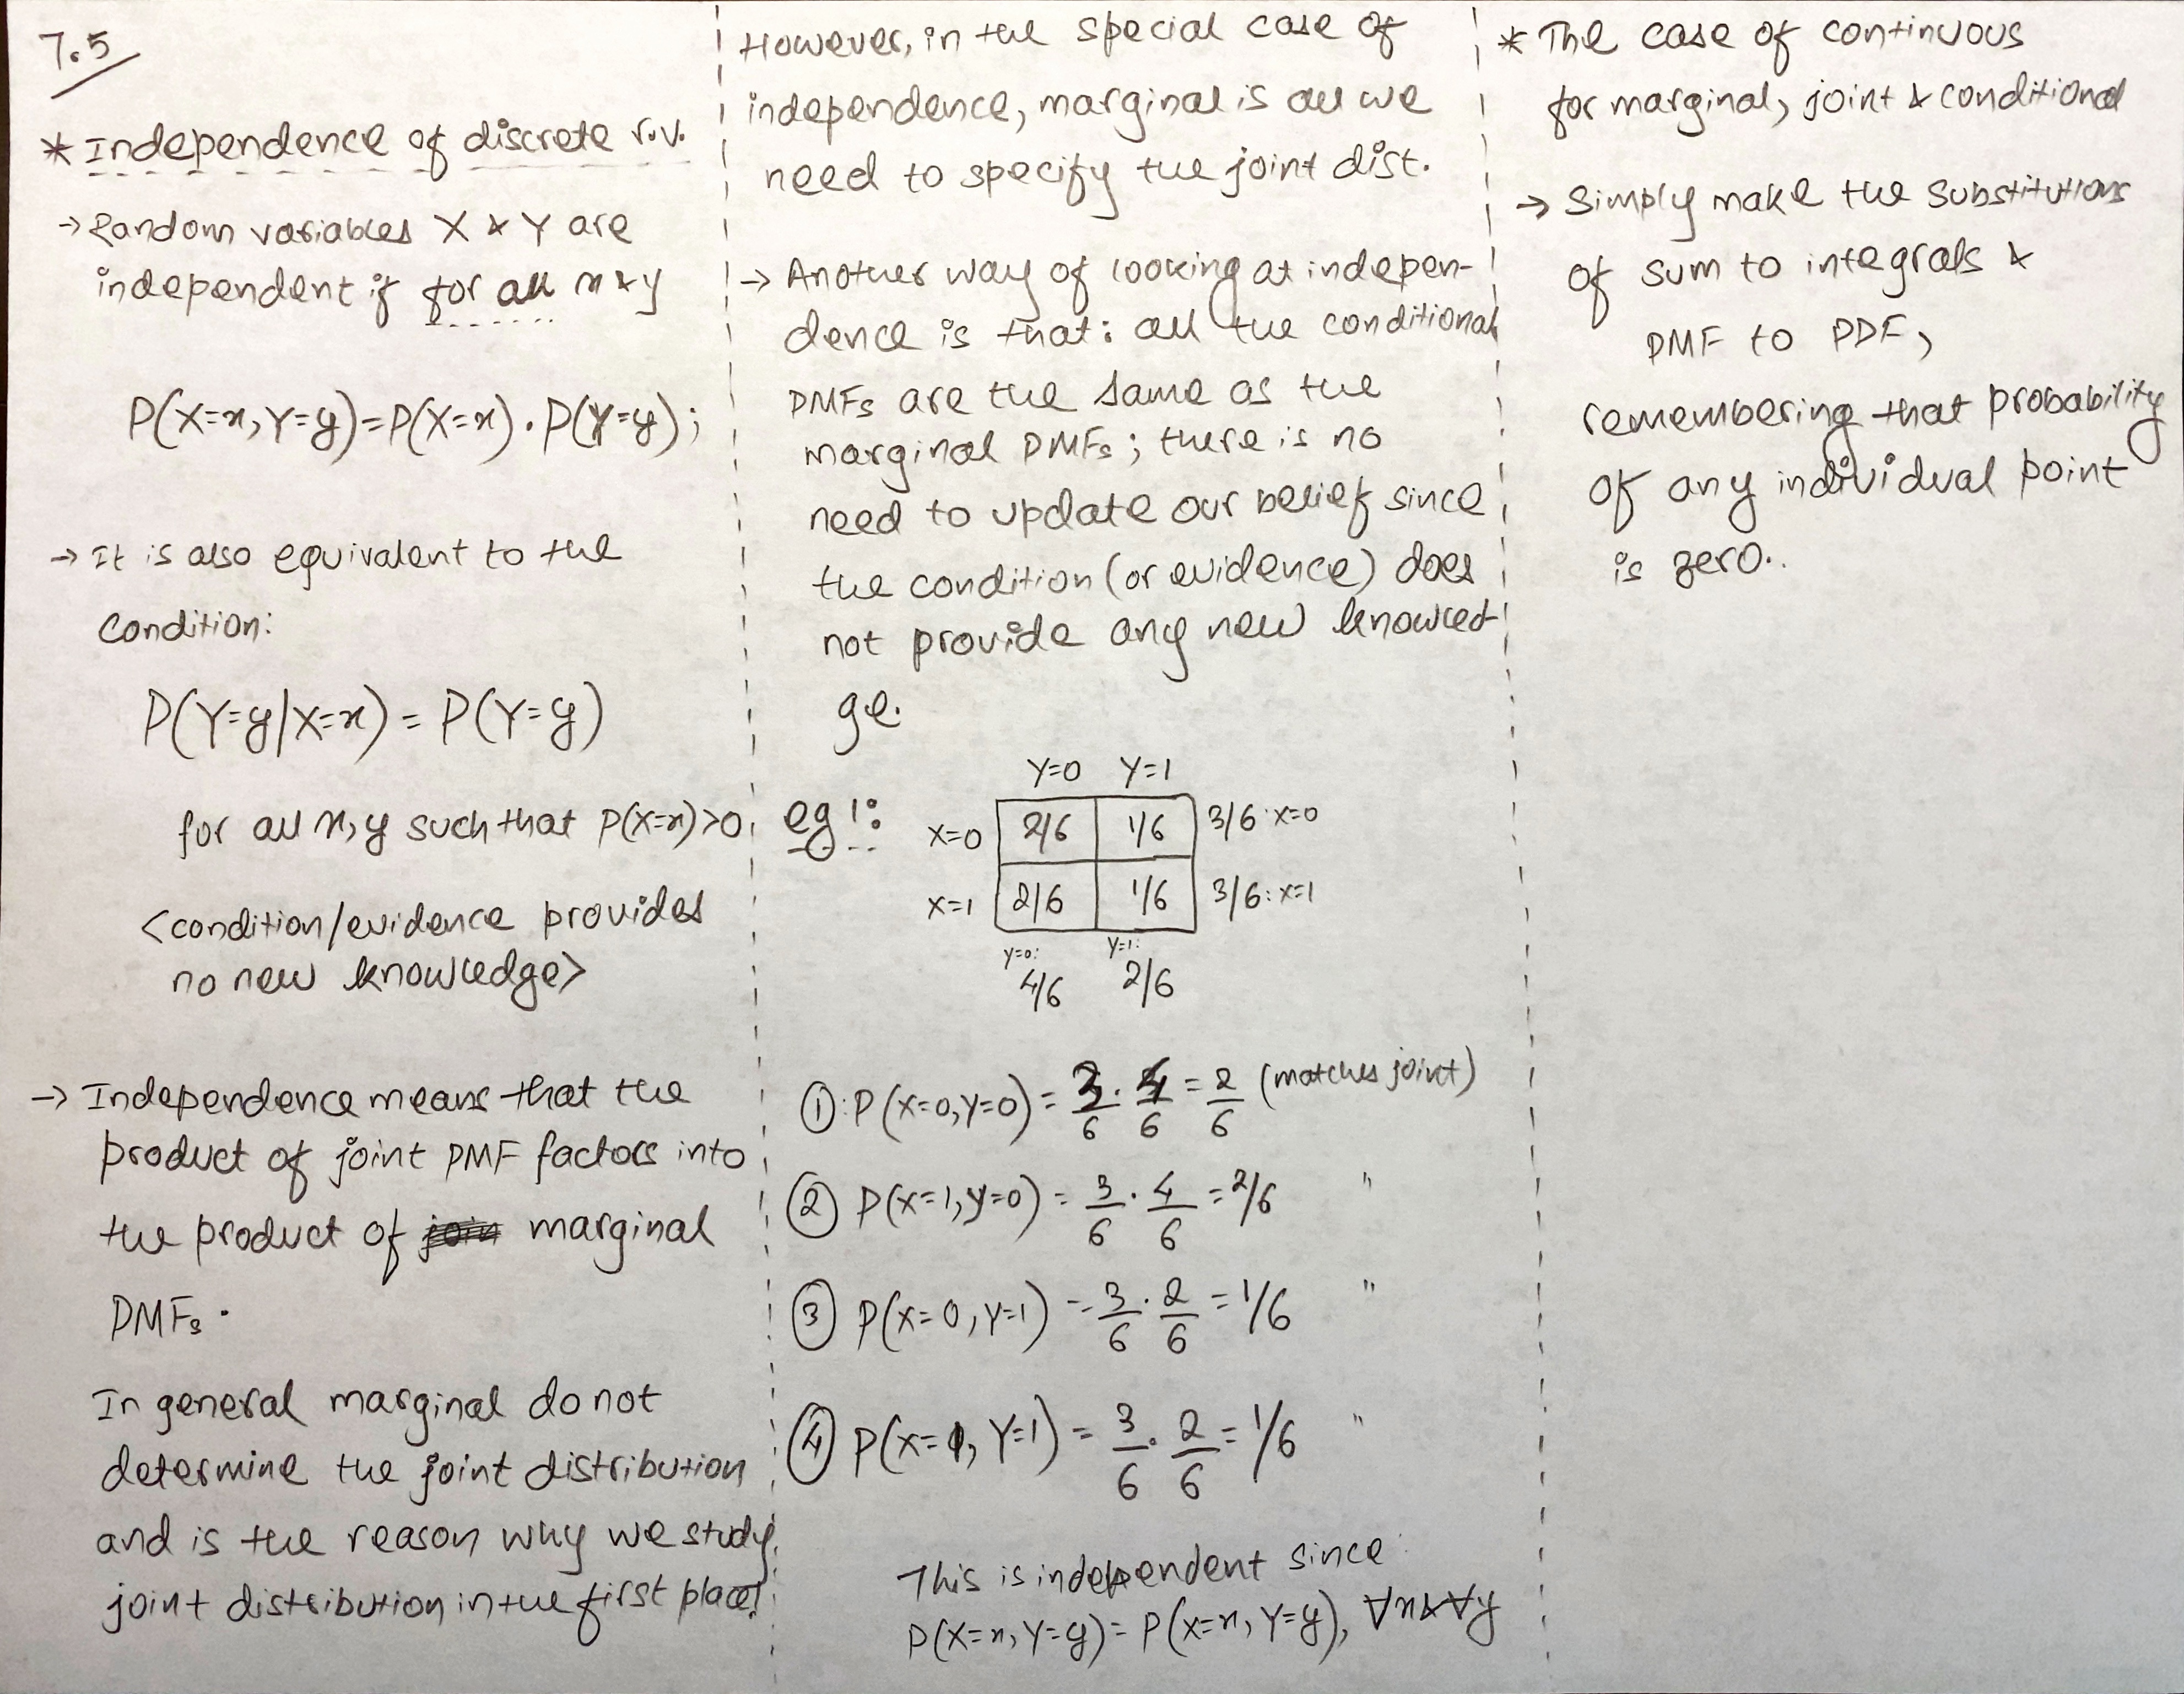 7.5
* Independence of discrete r.v.
→ Random variables X & Y are
independent if for all x & y
P(X=x, Y=y)=P(X=x).P(Y=y);
→ It is also equivalent to the
condition:
P(Y=y|X=x) = P(Y=y)
for all x, y such that P(X=x)>0
<condition/evidence provides
no new knowledge>
→ Independence means that the
product of joint PMF factors into
the product of marginal
PMFs.
In general marginal do not
determine the joint distribution
and is the reason why we study
joint distribution in the first place!
However, in the special case of
independence, marginal is all we
need to specify the joint dist.
→ Another way of looking at indepen-
dence is that: all the conditional
PMFs are the same as the
marginal PMFs; there is no
need to update our belief since
the condition (or evidence) does
not provide any new knowled
ge.
eg 1:
Y=0 Y=1
X=0 2/6 1/6 3/6: X=0
X=1 2/6 1/6 3/6: X=1
Y=0: Y=1:
4/6 2/6
①: P(X=0,Y=0) = 3/6 . 4/6 = 2/6 (matches joint)
② P(X=1,Y=0) = 3/6 . 4/6 = 2/6 "
③ P(X=0,Y=1) = 3/6 . 2/6 = 1/6 "
④ P(X=1, Y=1) = 3/6 . 2/6 = 1/6 "
This is independent since
P(X=x, Y=y) = P(X=x, Y=y), ∀x & ∀y
* The case of continuous
for marginal, joint & conditional
→ Simply make the substitutions
of sum to integrals &
PMF to PDF,
remembering that probability
of any individual point
is zero..